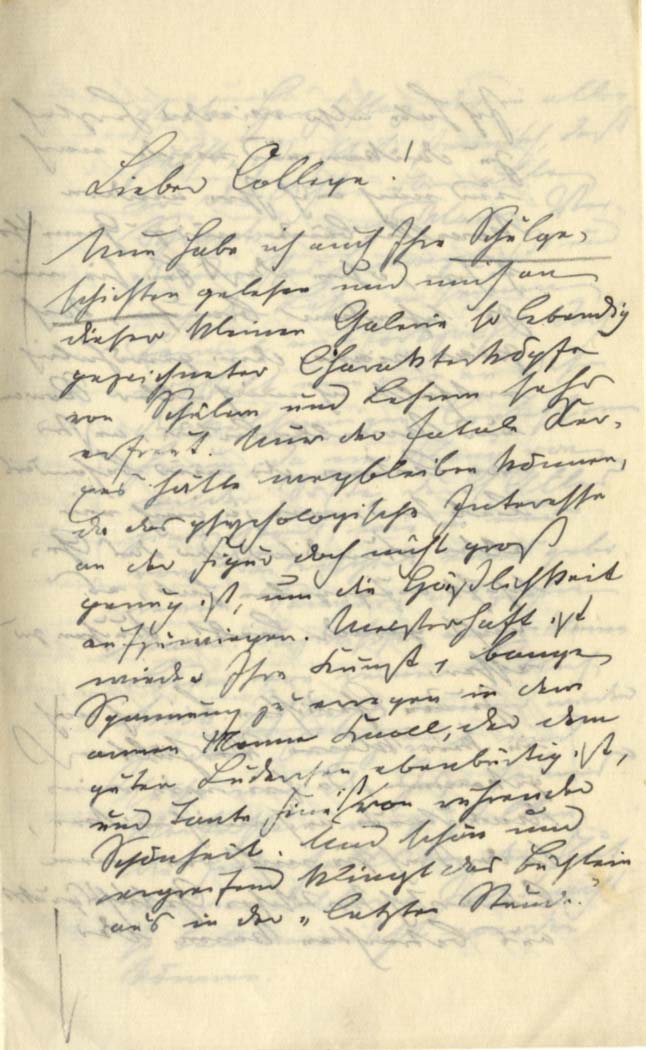 Lieber College!
Nun habe ich auch Ihre Schülge-
schichten gelesen und mich an
dieser kleinen Galerie so lebendig
gezeichneter Charakterköpfe
von Schülern und Lehrern sehr
erfreut. Nur der fatale
hätte wegbleiben können,
da das psychologische Interesse
an der Figur doch nicht groß
genug ist, um die Häßlichkeit
aufzuwiegen. Meisterhaft ist
wieder Ihre Kunst, bange
Spannung zu erregen in dem
armen Knoll, der dem
guten ebenbürtig ist,
und Tante von rührender
Schönheit. Und schön und
ergreifend klingt das Büchlein
aus in der „letzten Stunde."